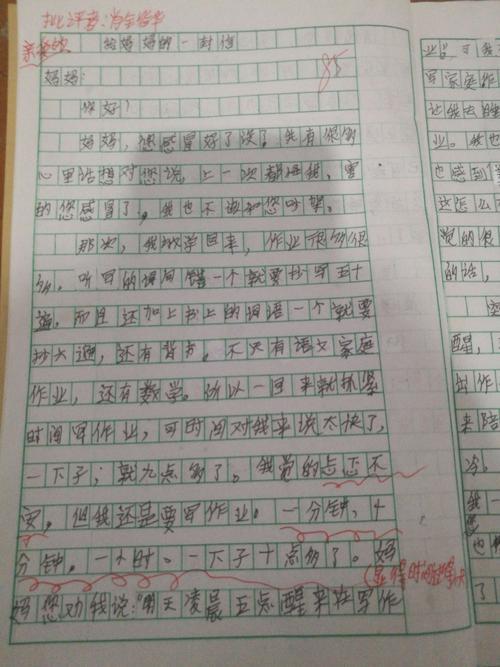 亲爱的 给妈妈的一封信
85
妈妈:
你好!
妈妈,您感冒好了没?我有很多
心里话想对您说,上一次都怪我,害
的您感冒了,我也不该和您吵架。
那次,我放学回来,作业很多很
多。听写的词词错一个就要抄写五十
遍,而且还加上书上的词语一个就要
抄六遍,还有背书。不只有语文家庭
作业,还有数学。所以一回来就抓紧
时间写作业,可时间对我来说太快了,
一下子;就九点多了。我觉的忐忑不
安。但我还是要写作业。一分钟,十
分钟。一小时。一下子十点多了。妈
妈您劝我说:"明天凌晨五点醒来在写作
业。可我
写家庭作
让我去睡
业。我也
也感到
这怎么
觉的很
的话,
醒,
出作
来陪
冷。
也